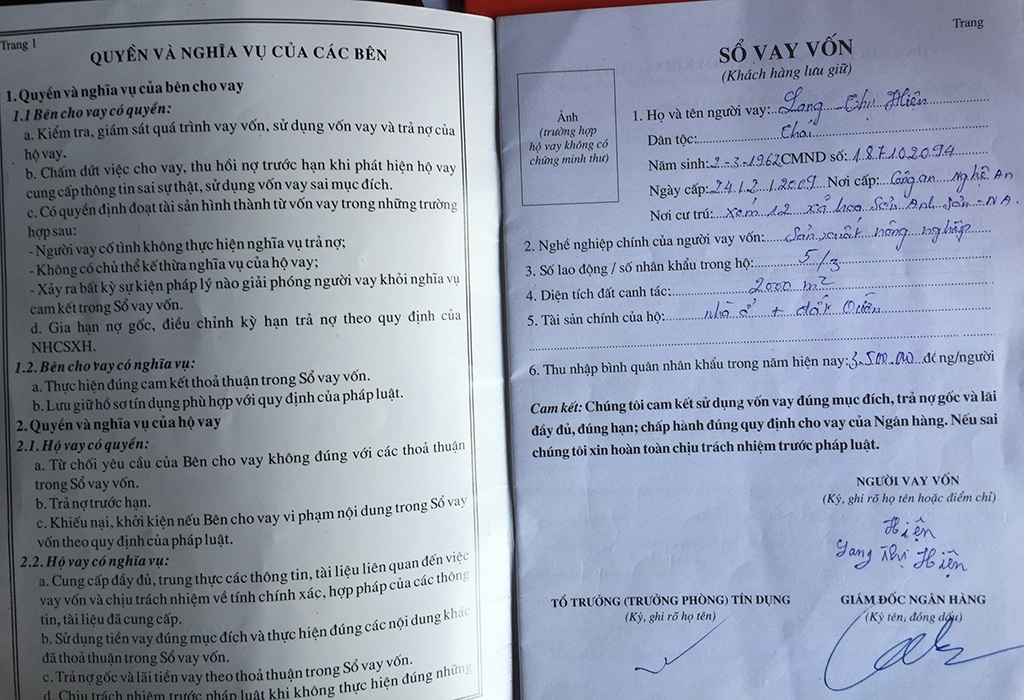 Trang 1
QUYỀN VÀ NGHĨA VỤ CỦA CÁC BÊN
1. Quyền và nghĩa vụ của bên cho vay
1.1 Bên cho vay có quyền:
a. Kiểm tra, giám sát quá trình vay vốn, sử dụng vốn vay và trả nợ của
hộ vay.
b. Chấm dứt việc cho vay, thu hồi nợ trước hạn khi phát hiện hộ vay
cung cấp thông tin sai sự thật, sử dụng vốn vay sai mục đích.
c. Có quyền định đoạt tài sản hình thành từ vốn vay trong những trường
hợp sau:
- Người vay cố tình không thực hiện nghĩa vụ trả nợ;
- Không có chủ thể kế thừa nghĩa vụ của hộ vay;
- Xảy ra bất kỳ sự kiện pháp lý nào giải phóng người vay khỏi nghĩa vụ
cam kết trong Sổ vay vốn.
d. Gia hạn nợ gốc, điều chỉnh kỳ hạn trả nợ theo quy định của
NHCSXH.
1.2. Bên cho vay có nghĩa vụ:
a. Thực hiện đúng cam kết thoả thuận trong Sổ vay vốn.
b. Lưu giữ hồ sơ tín dụng phù hợp với quy định của pháp luật.
2. Quyền và nghĩa vụ của hộ vay
2.1. Hộ vay có quyền:
a. Từ chối yêu cầu của Bên cho vay không đúng với các thoả thuận
trong Sổ vay vốn.
b. Trả nợ trước hạn.
c. Khiếu nại, khởi kiện nếu Bên cho vay vi phạm nội dung trong Sổ vay
vốn theo quy định của pháp luật.
2.2. Hộ vay có nghĩa vụ:
a. Cung cấp đầy đủ, trung thực các thông tin, tài liệu liên quan đến việc
vay vốn và chịu trách nhiệm về tính chính xác, hợp pháp của các thông
tin, tài liệu đã cung cấp.
b. Sử dụng tiền vay đúng mục đích và thực hiện đúng các nội dung khác
đã thoả thuận trong Sổ vay vốn.
c. Trả nợ gốc và lãi tiền vay theo thoả thuận trong Sổ vay vốn.
d. Chịu trách nhiệm trước pháp luật khi không thực hiện đúng những
Trang
SỔ VAY VỐN
(Khách hàng lưu giữ)
Ảnh
(trường hợp
hộ vay không có
chứng minh thư)
1. Họ và tên người vay: Lang Thị Hiện
Dân tộc: Thái
Năm sinh: 2-3-1962 CMND số: 187102094
Ngày cấp: 24/2/2009 Nơi cấp: Công an Nghệ An
Nơi cư trú: xóm 12 xã hoa Sơn Anh Sơn - NA.
2. Nghề nghiệp chính của người vay vốn: Sản xuất nông nghiệp
3. Số lao động / số nhân khẩu trong hộ: 5/3
4. Diện tích đất canh tác: 2000 m2
5. Tài sản chính của hộ: nhà ở + đất vườn
6. Thu nhập bình quân nhân khẩu trong năm hiện nay: 3.500.000 đồng/người
Cam kết: Chúng tôi cam kết sử dụng vốn vay đúng mục đích, trả nợ gốc và lãi
đầy đủ, đúng hạn; chấp hành đúng quy định cho vay của Ngân hàng. Nếu sai
chúng tôi xin hoàn toàn chịu trách nhiệm trước pháp luật.
NGƯỜI VAY VỐN
(Ký, ghi rõ họ tên hoặc điểm chỉ)
Hiện
Lang Thị Hiện
TỔ TRƯỞNG (TRƯỞNG PHÒNG) TÍN DỤNG
(Ký, ghi rõ họ tên)
GIÁM ĐỐC NGÂN HÀNG
(Ký tên, đóng dấu)